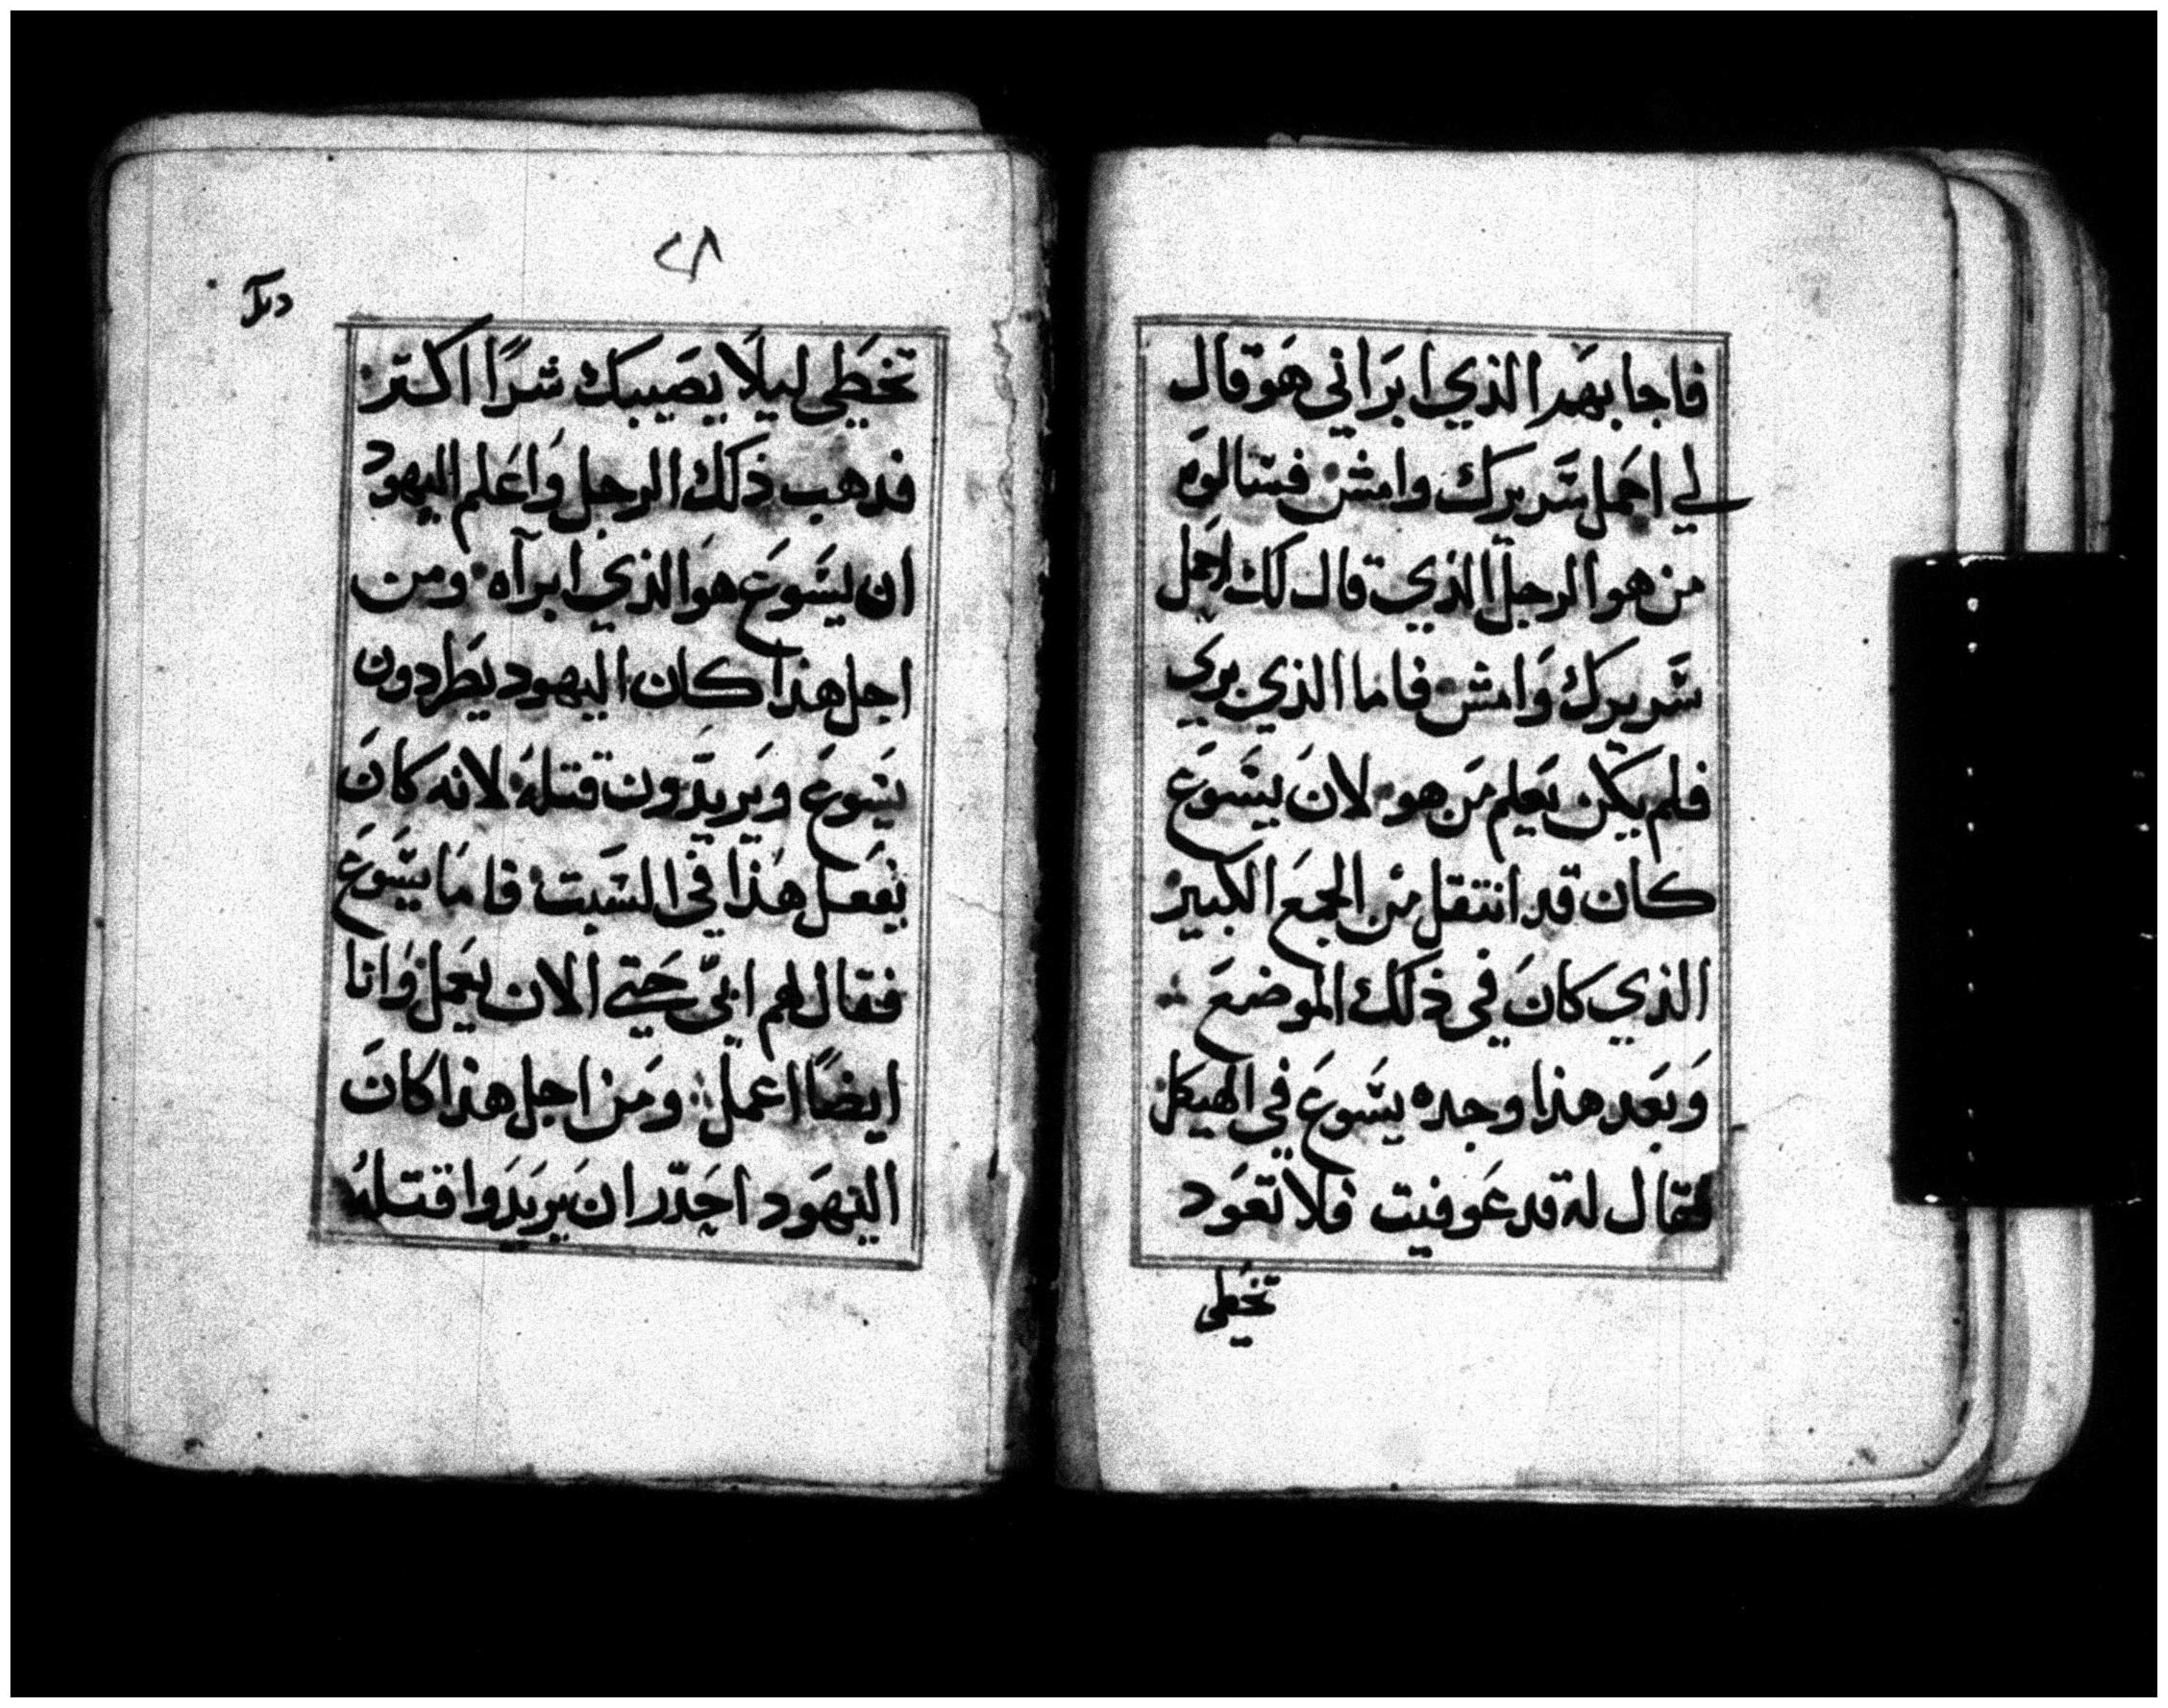 فاجابهم الذي ابراني هو قال
لي احمل سريرك وامش فسالوه
من هو الرجل الذي قال لك احمل
سريرك وامش فاما الذي بري
فلم يكن يعلم من هو لان يسوع
كان قد انتقل من الجمع الكبير
الذي كان في ذلك الموضع
وبعد هذا وجده يسوع في الهيكل
فقال له قد عوفيت فلا تعود
تخطي
٢٨
تخطي ليلا يصيبك شرا اكتر
فدهب ذلك الرجل واعلم اليهود
ان يسوع هو الذي ابرآه ومن
اجل هذا كان اليهود يطردون
يسوع ويريدون قتله لانه كان
يفعل هذا في السبت فاما يسوع
فقال لهم ابي حتي الان يعمل وانا
ايضًا اعمل ومن اجل هذا كان
اليهود احدر ان يريدوا قتله